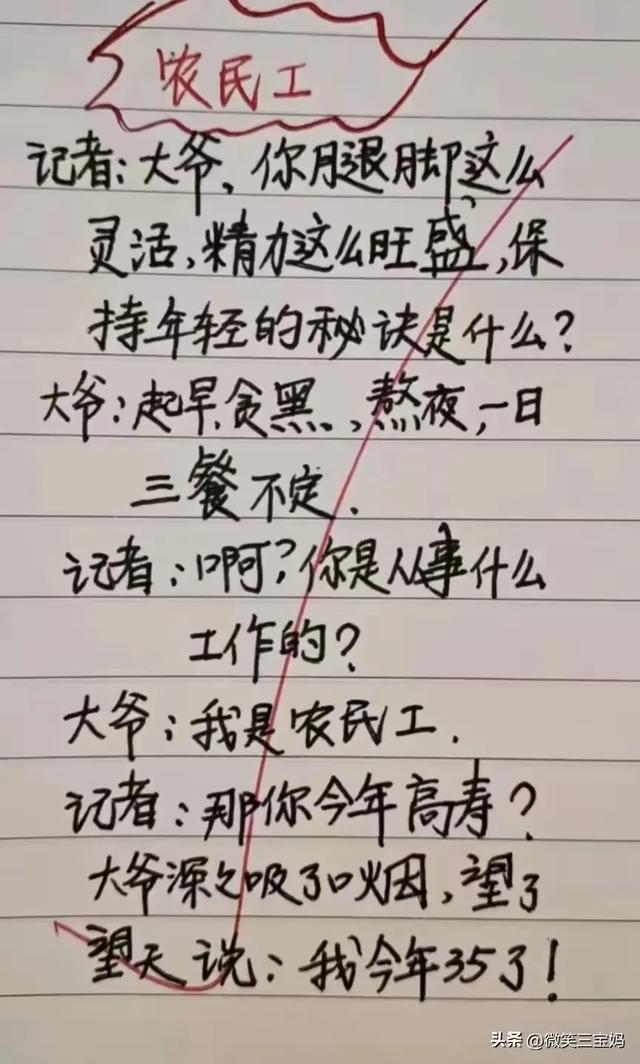 农民工
记者:大爷,你腿脚这么
灵活,精力这么旺盛,保
持年轻的秘诀是什么?
大爷:起早贪黑,熬夜,一日
三餐不定.
记者:啊?你是从事什么
工作的?
大爷:我是农民工.
记者:那你今年高寿?
大爷深深吸了口烟,望了
望天说:我今年35了!
头条 @微笑三宝妈